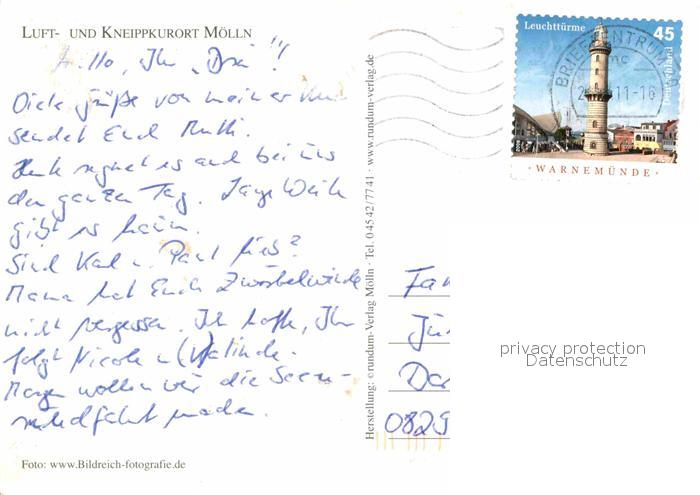 LUFT- UND KNEIPPKURORT MÖLLN
Hallo, Ihr "Drei"!
Viele Grüße von meiner Kur
sendet Euch Mutti.
Heute regnet es auch bei uns
den ganzen Tag. Lange Weile
gibt es kaum.
Sind Karl u. Paul lieb?
Mama hat Euch Zwerbelwinde
nicht vergessen. Ich hoffe, Ihr
folgt Nicole u. Malinde.
Morgen wollen wir die Seen-
rundfahrt machen.
Foto: www.Bildreich-fotografie.de
Herstellung: © rundum-Verlag Mölln · Tel. 0 45 42 / 77 41 · www.rundum-verlag.de
Leuchttürme 45
Deutschland
· WARNEMÜNDE ·
BRIEFZENTRUM
11-16
Fam
Jü
Da
0829
privacy protection
Datenschutz